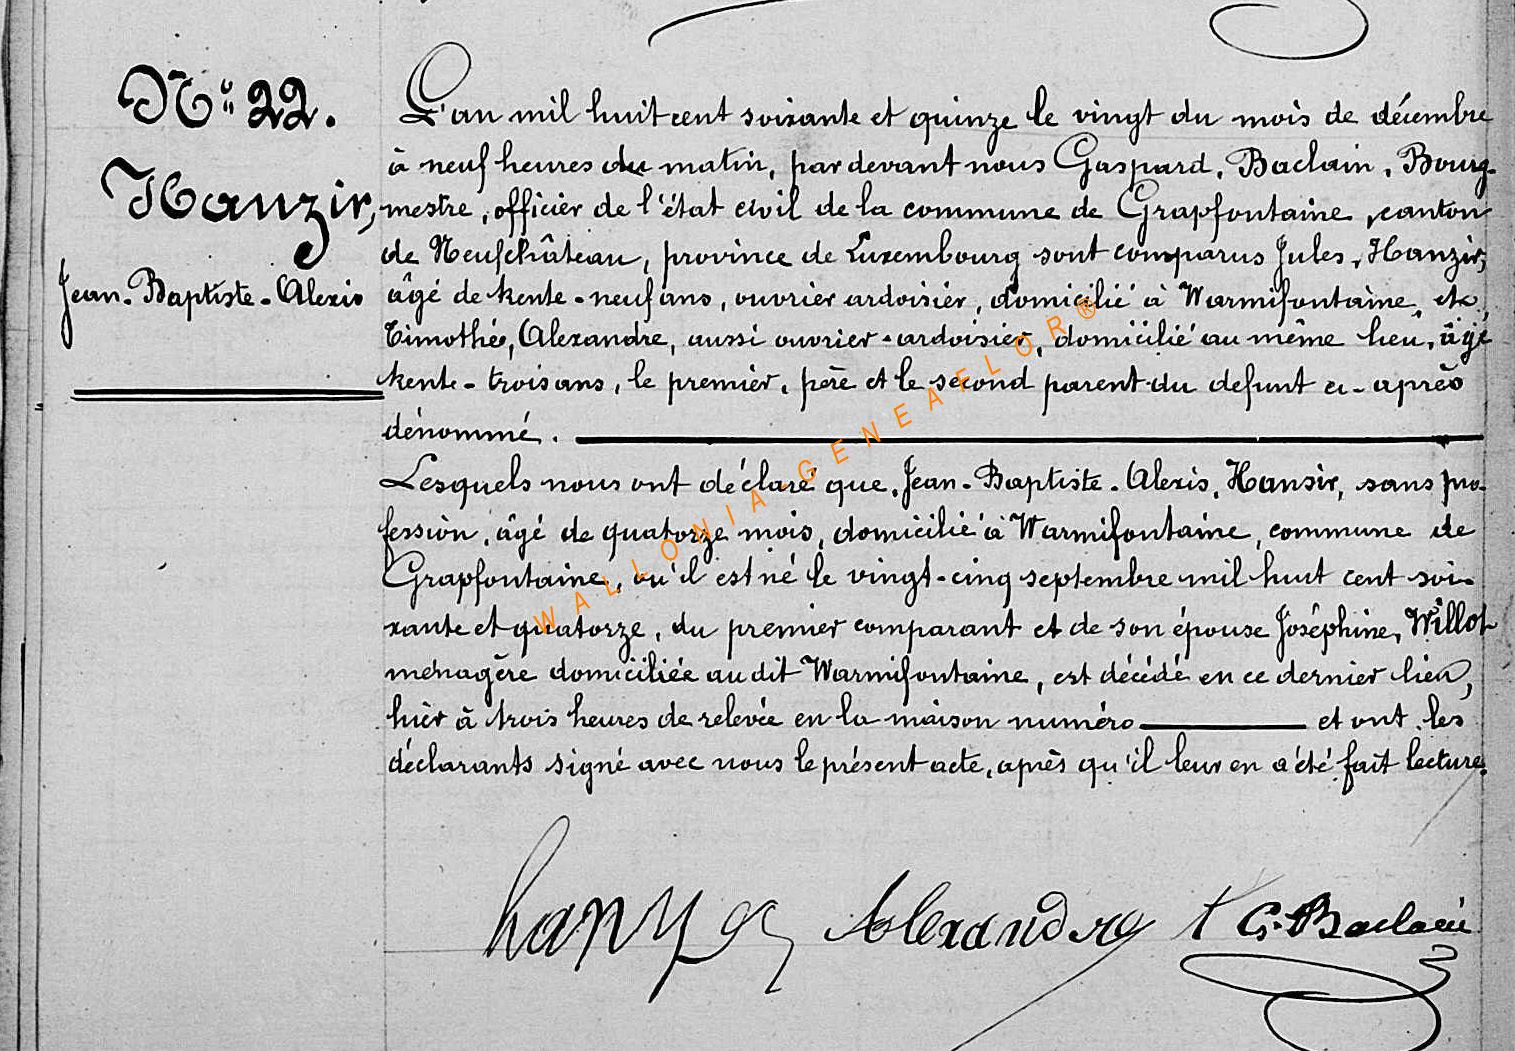 N° 22.
Hanzir,
Jean-Baptiste-Alexis
L'an mil huit cent soixante et quinze le vingt du mois de décembre
à neuf heures du matin, par devant nous Gaspard, Baclain, Bourg-
mestre, officier de l'état civil de la commune de Grapfontaine, canton
de Neufchâteau, province de Luxembourg sont comparus Jules, Hanzir,
âgé de trente-neuf ans, ouvrier ardoisier, domicilié à Warmifontaine et
Timothée, Alexandre, aussi ouvrier-ardoisier, domicilié au même lieu, âgé
trente-trois ans, le premier, père et le second parent du defunt ci-après
dénommé.
Lesquels nous ont déclaré que, Jean-Baptiste-Alexis, Hansir, sans pro-
fession, âgé de quatorze mois, domicilié à Warmifontaine, commune de
Grapfontaine, où il est né le vingt-cinq septembre mil huit cent soi-
xante et quatorze, du premier comparant et de son épouse Joséphine, Willot
ménagère domiciliée audit Warmifontaine, est décédé en ce dernier lieu,
hier à trois heures de relevée en la maison numéro et ont les
déclarants signé avec nous le présent acte, après qu'il leur en a été fait lecture.
Alexandre G. Baclain
WALLONIA-GENEAFLOR®